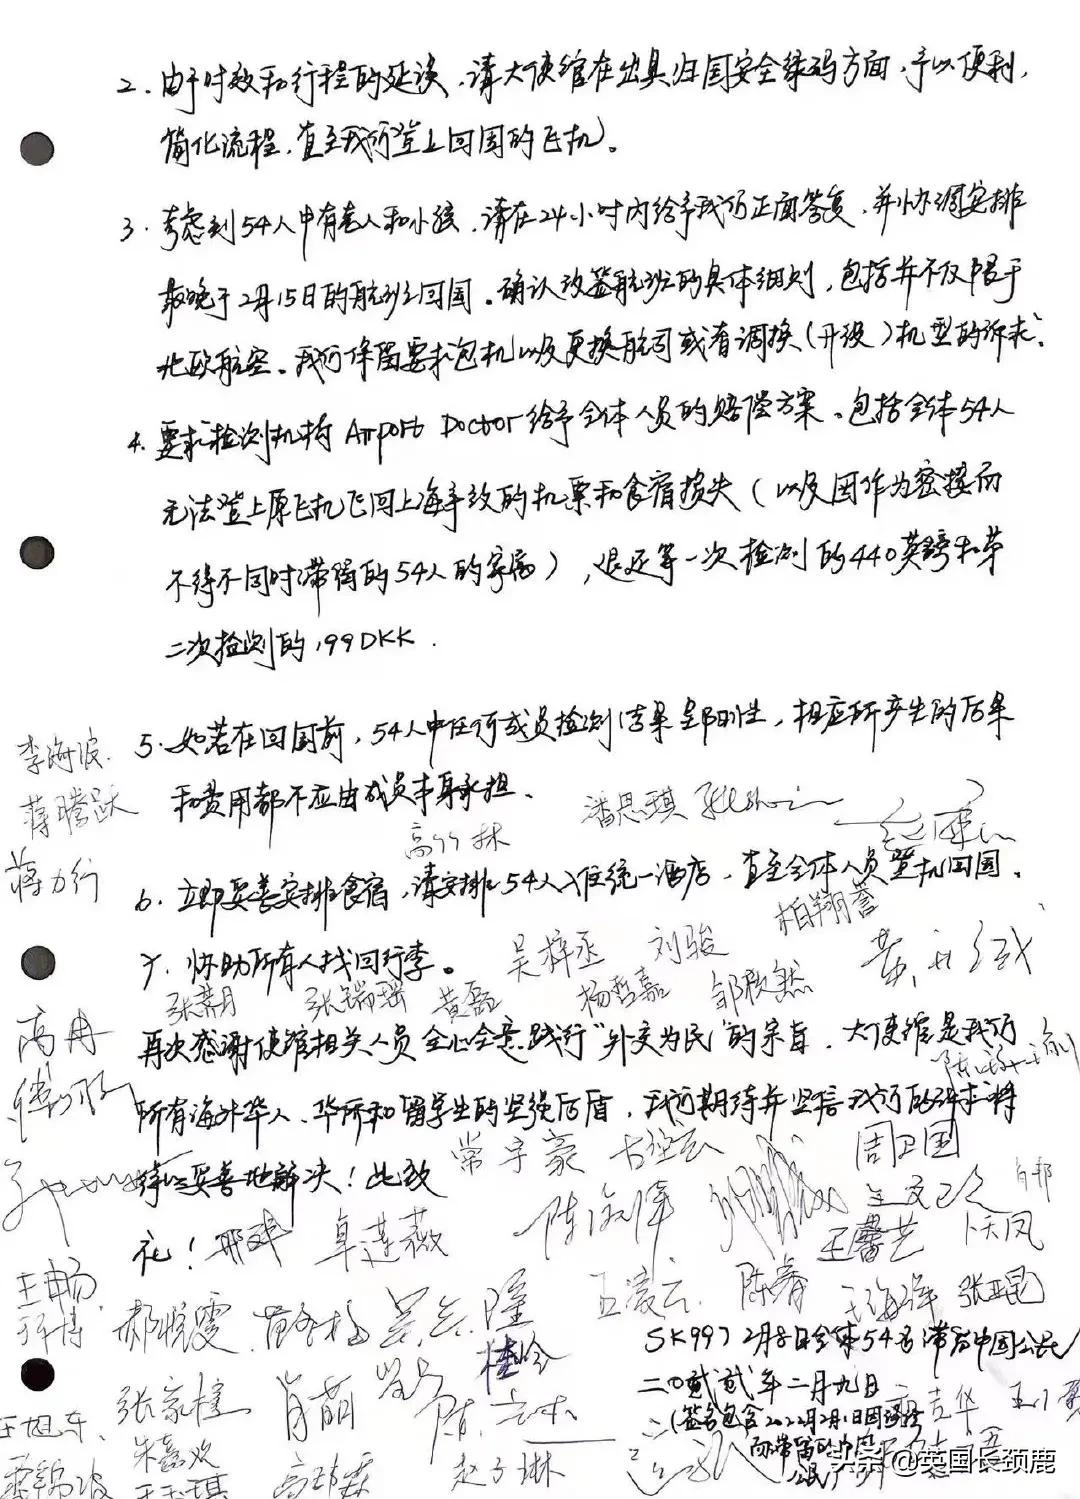 2. 由于时效和行程的延误，请大使馆在出具归国安全绿码方面，予以便利，
简化流程，直至我们登上回国的飞机。
3. 考虑到54人中有老人和小孩，请在24小时内给予我们正面答复，并协调安排
最晚于2月15日的航班回国。确认改签航班的具体细则，包括并不仅限于
北欧航空。我们保留要求包机以及更换航司或者调换（升级）机型的诉求。
4. 要求检测机构 Airport Doctor 给予全体人员的赔偿方案。包括全体54人
无法登上原飞机飞回上海导致的机票和食宿损失（以及因作为密接而
不得不同时滞留的54人的家属），退还第一次检测的440英镑和第
二次检测的199DKK.
李海波
5. 如若在回国前，54人中任何成员检测结果呈阳性，相应所产生的后果
蒋腾跃
和费用都不应由成员本身承担。
潘思琪
高竹林
蒋力行
6. 立即妥善安排食宿，请安排54人入住统一酒店，直至全体人员登机回国。
柏翔誉
7. 协助所有人找回行李。
吴梓丞 刘骏
张萧月 张瑞瑶 黄磊 杨哲嘉 邹颢然
高冉
再次感谢使馆相关人员全心全意践行“外交为民”的宗旨，大使馆是我们
所有海外华人、华侨和留学生的坚强后盾，我们期待并坚信我们的诉求将
常宇豪 周卫国
得以妥善地解决！此致
礼！
卓莲薇
王馨艺 卜天凤
王畅
郝悦雯
孟凌云 陈睿 张亚昆
SK997 2月8日全体54名滞留中国公民
桂吟
二〇贰贰年二月九日
张家槿 肖萌
（签名包含2022年2月1日因误检
而滞留的中国
公民）
王旭东
朱鑫欢
赵子琳
头条 @英国长颈鹿